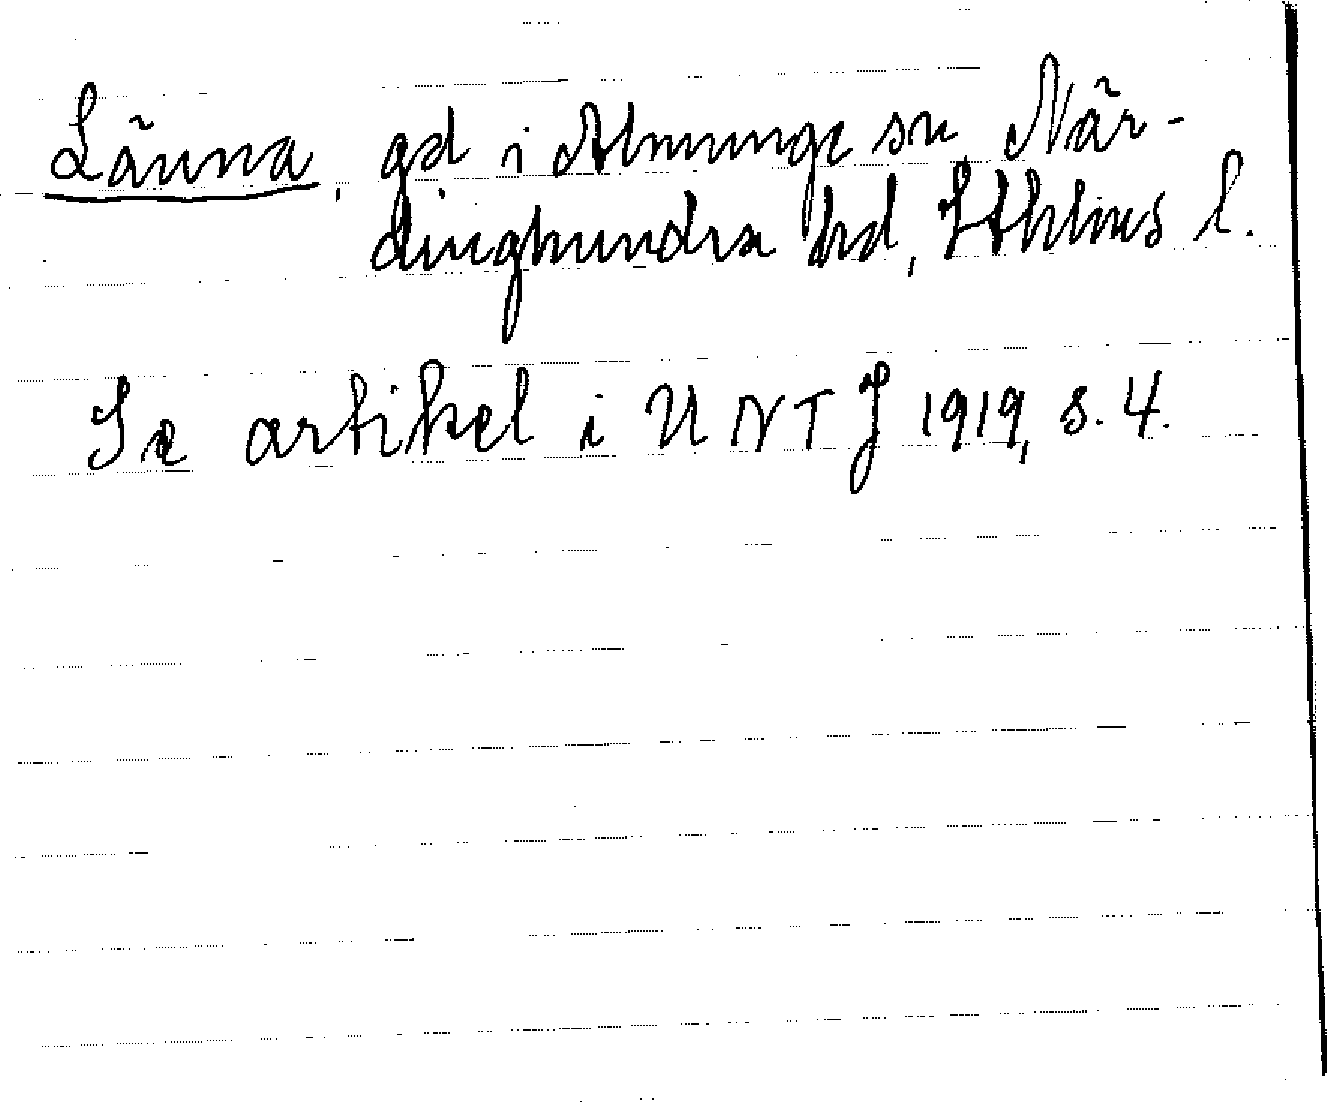 Länna, gd i Almunge sn, När-
dinghundra hd, Sthlms l.
Se artikel i UNTJ 1919, s. 4.